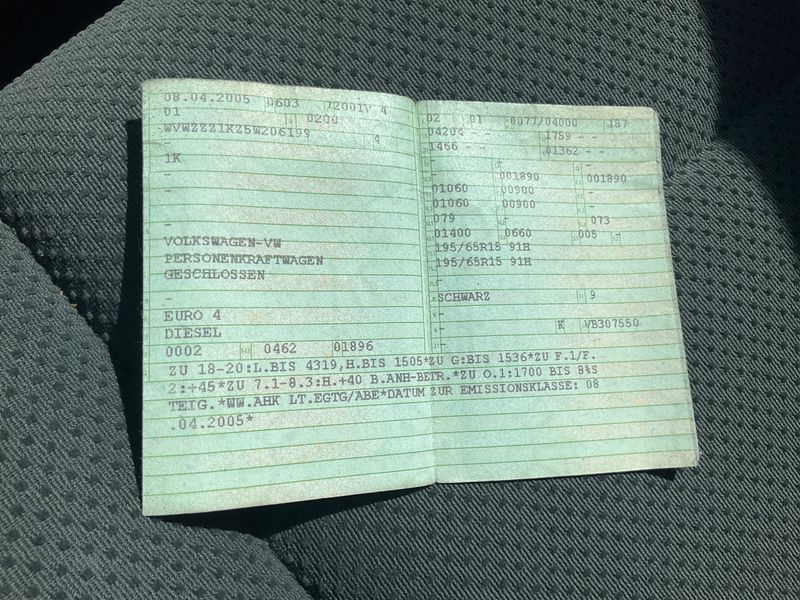 08.04.2005 0603 72001V 4
01 0200
WVWZZZ1KZ5W206199
4
1K
-
-
-
VOLKSWAGEN-VW
PERSONENKRAFTWAGEN
GESCHLOSSEN
-
EURO 4
DIESEL
0002 0462 01896
02 01 0077/04000 187
04204 - - 1759 - -
1466 - - 01362 - -
- - -
- 001890 001890
01060 00900 -
01060 00900 -
079 - 073
01400 0660 005 -
195/65R15 91H
195/65R15 91H
-
-
SCHWARZ 9
-
K VB307550
-
ZU 18-20:L.BIS 4319,H.BIS 1505*ZU G:BIS 1536*ZU F.1/F.
2:+45*ZU 7.1-8.3:H.+40 B.ANH-BETR.*ZU O.1:1700 BIS 8%S
TEIG.*WW.AHK LT.EGTG/ABE*DATUM ZUR EMISSIONSKLASSE: 08
.04.2005*